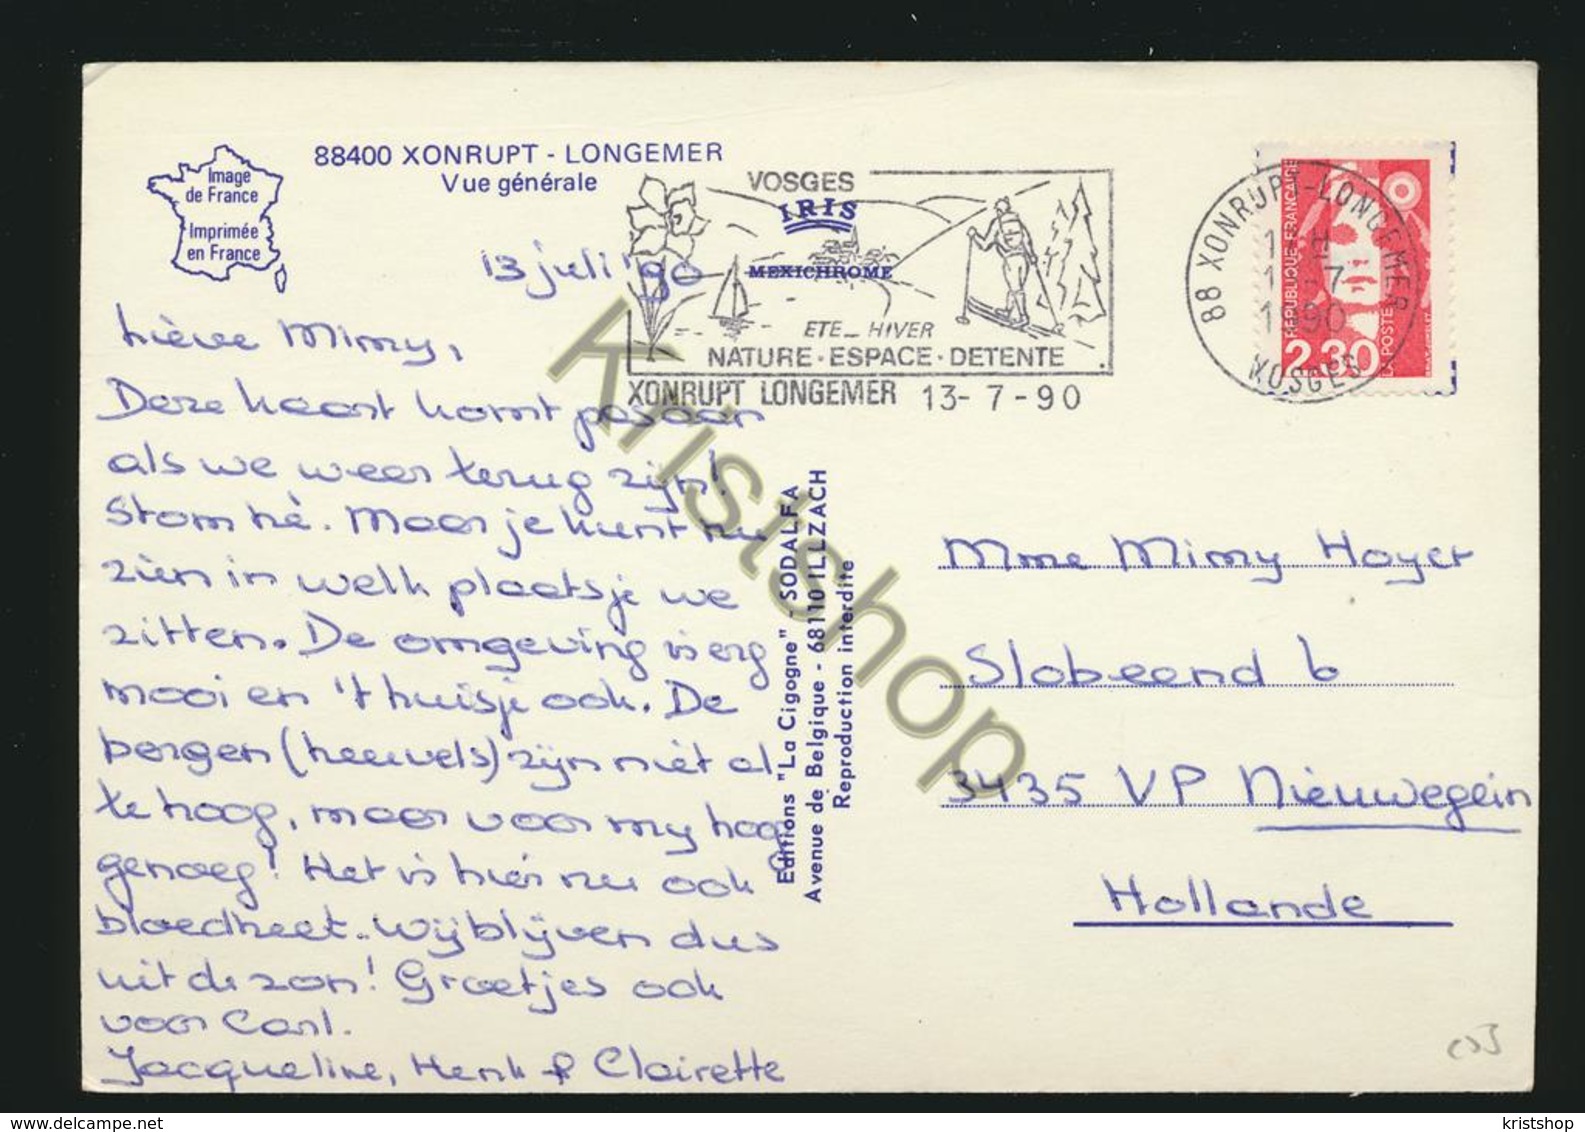 88400 XONRUPT - LONGEMER
Vue générale
Image
de France
Imprimée
en France
VOSGES
IRIS
MEXICHROME
ETE - HIVER
NATURE · ESPACE · DETENTE
XONRUPT LONGEMER 13-7-90
88 XONRUPT-LONGEMER
1990
VOSGES
REPUBLIQUE FRANÇAISE
LA POSTE
2,30
13 juli '90
Lieve Mimy,
Deze kaart komt pas aan
als we weer terug zijn!
Stom hè. Maar je kunt nu
zien in welk plaatsje we
zitten. De omgeving is erg
mooi en 't huisje ook. De
bergen (heuvels) zijn niet al
te hoog, maar voor my hoog
genoeg! Het is hier nu ook
bloedheet.. Wij blijven dus
uit de zon! Groetjes ook
voor Carl.
Jacqueline, Henk & Clairette
Editions "La Cigogne" - SODALFA
Avenue de Belgique - 68110 ILLZACH
Reproduction interdite
Mme Mimy Hoyer
Slobeend 6
3435 VP Nieuwegein
Hollande
Kristshop
kristshop